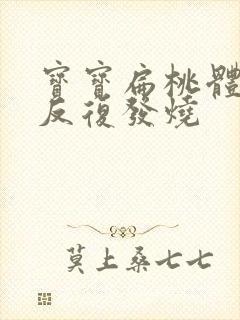 寶寶扁桃體
反復發燒
莫上桑七七